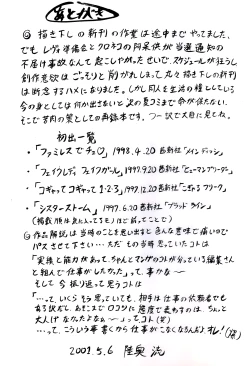 あとがき
◎描き下しの新刊の作業は途中までやってました。
でもレヴォ準備会とクロネコの阿呆伏が当選通知の
不届け事故なんて起こしやがったせいで、スケジュールが狂うし
創作意欲はごっそりと削がれしまって、丸々描き下しの新刊
は断念するハメになりました。しかし同人を生活の糧としている
今の身としては何か出さないと次の夏コミまで命が保たない。
そこで苦肉の策としての再録本です。つー訳で大目に見てね。
初出一覧
・「ファミレスでチュ♡」1998.4.20 茜新社「インデッシ」
・「フェイクレディ フェイクガール」1997.9.20 茜新社「ヒューマンプリーダー」
・「コギャってコギャって1・2・3」1997.12.20 茜新社「こギャるフリーク」
・「シスターストーム」1997.6.20 茜新社「ブラッドライン」
(掲載順は気に入ってる Eほど前ってことで)
◎作品解説は当時のことを思い出すと色んな意味で痛いので
パスさせて下さい…ただその当時思っていたコトは
「実技と能力があって、ちゃんとマンガのコトが分っている編集さん
と組んで仕事がしたかった」って、事かな〜
そして今振り返って思うコトは
「…って、いくらそう思っていても、相手は仕事の依頼者でも
ある訳だし、あそこまでロコツに態度で表わすのは、ちょっと
大人げなかったよな〜」ってコト(笑)
…って、こういう事書くから仕事がこなくなるんだよオレ!(笑)
2001.5.6 陸奥